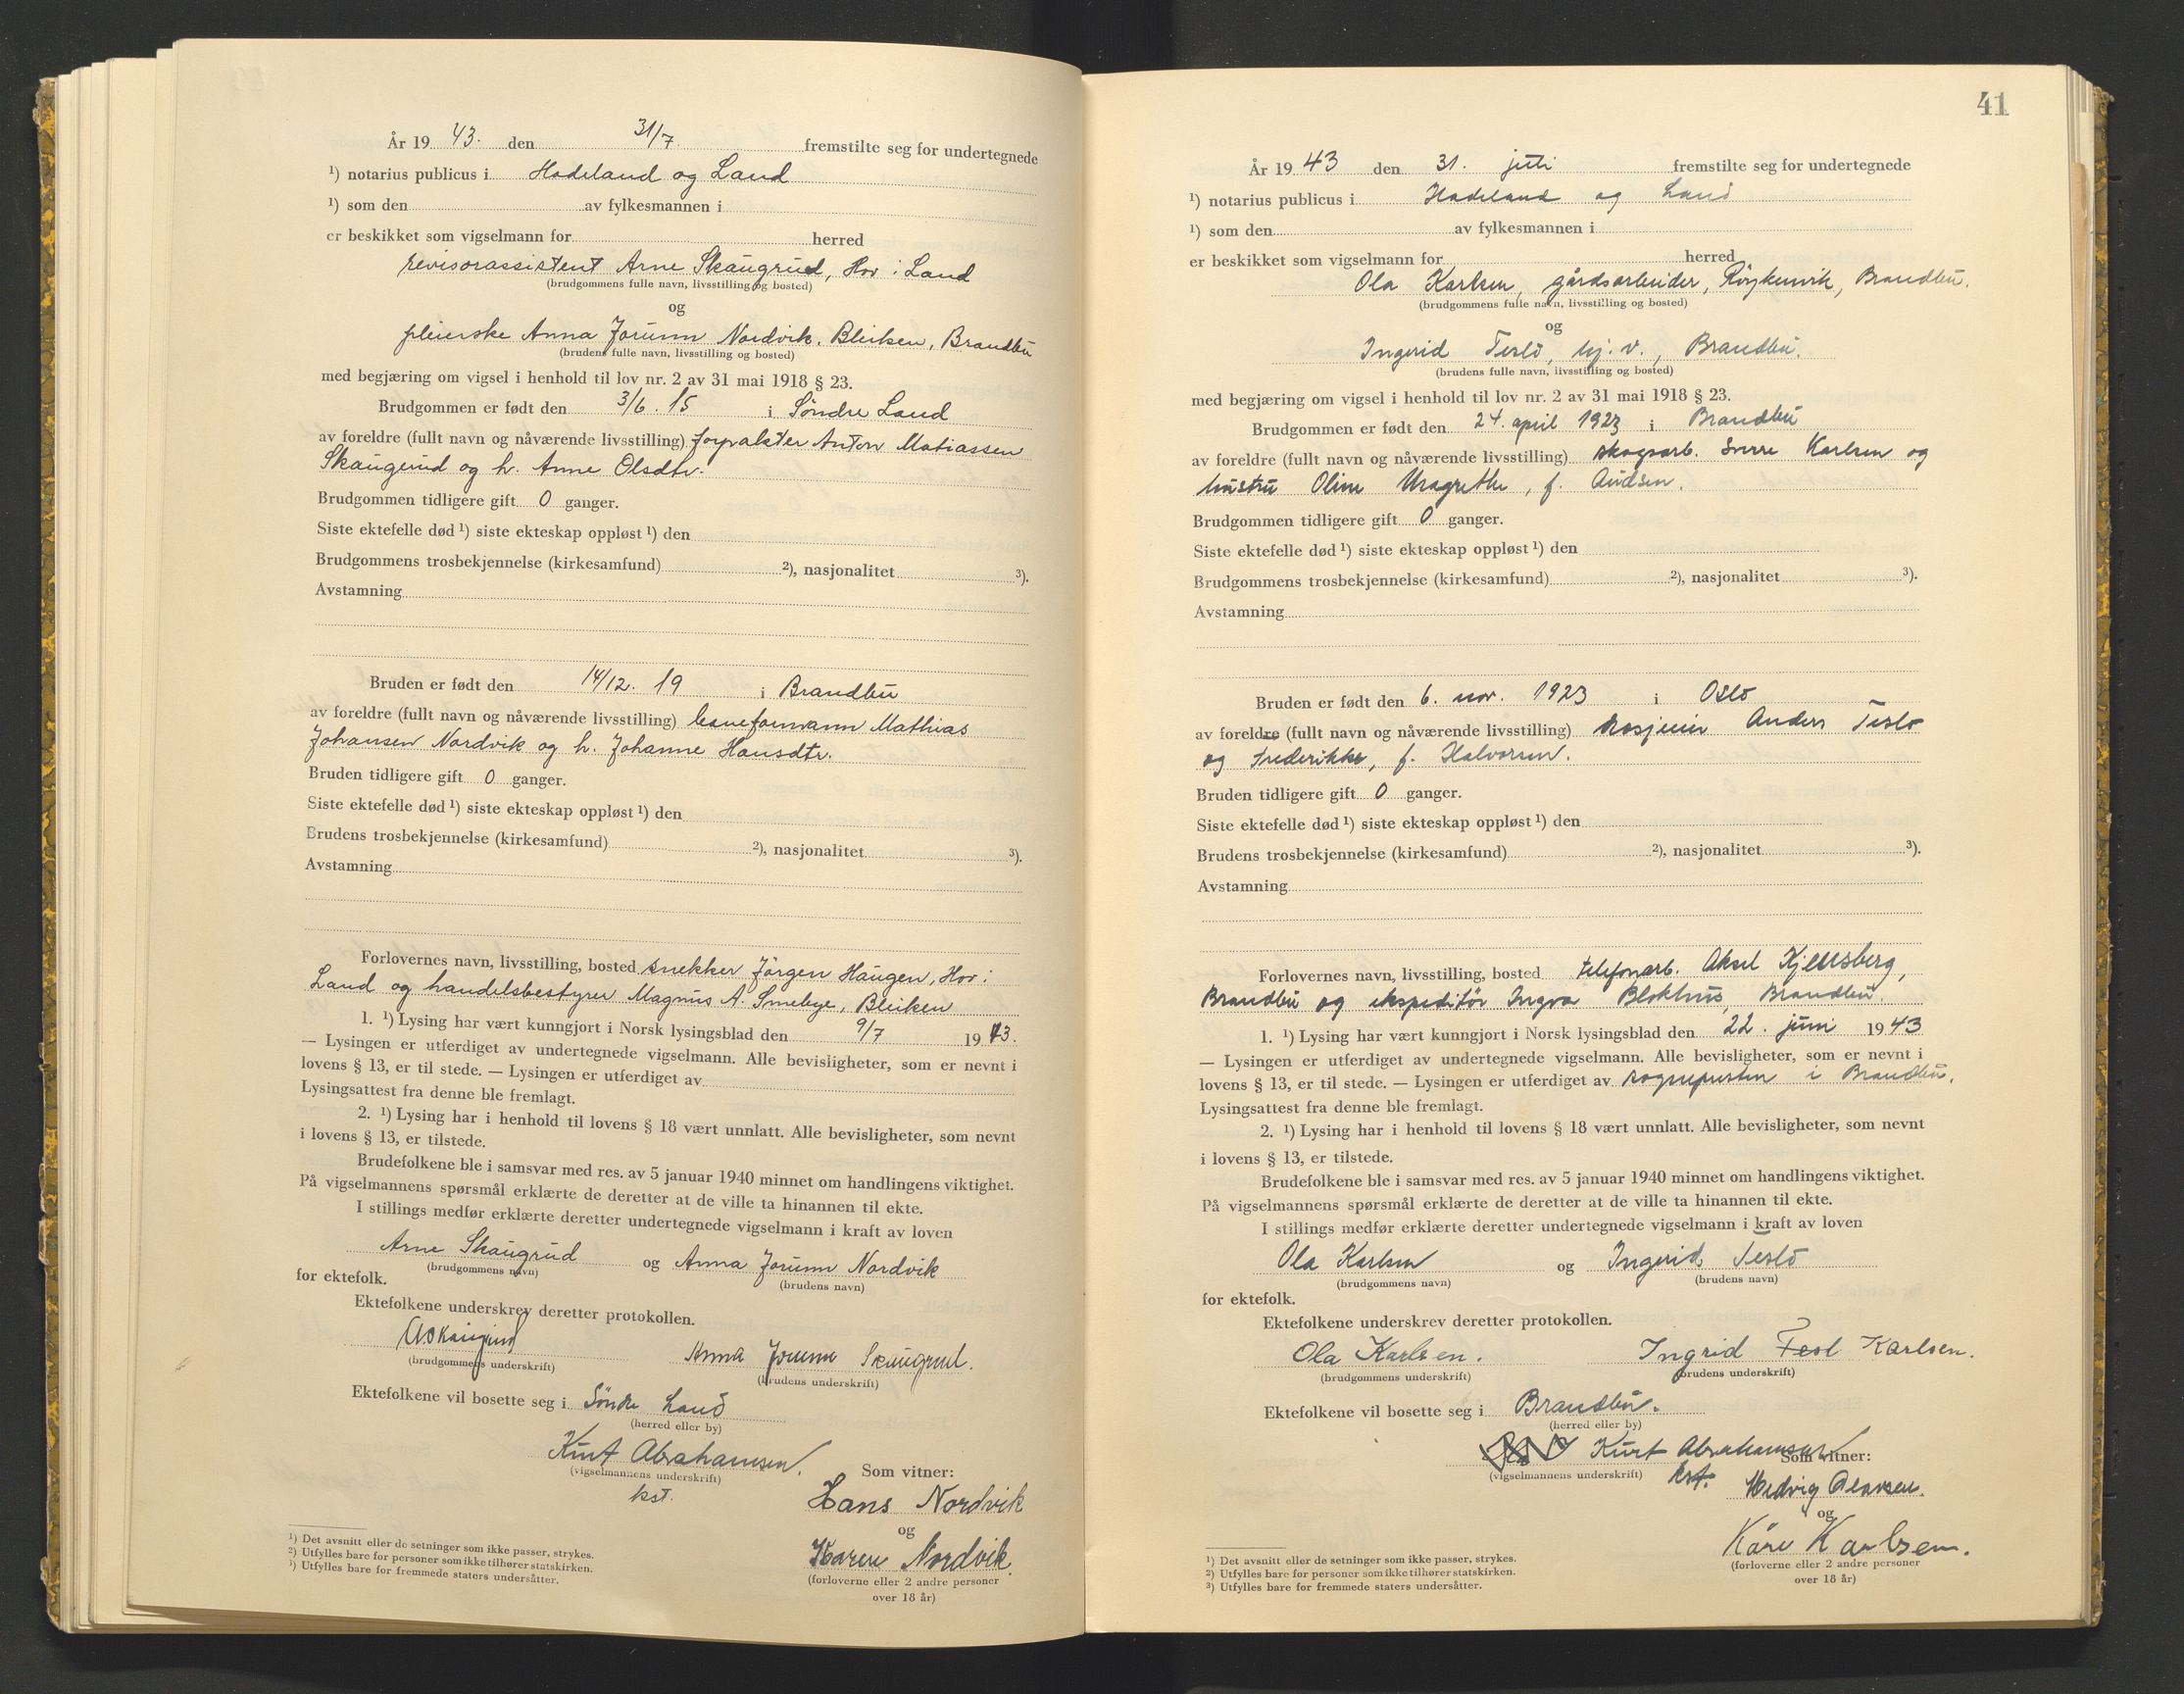 År 19 43. den 31/7. fremstilte seg for undertegnede
¹) notarius publicus i Hadeland og Land
¹) som den av fylkesmannen i
er beskikket som vigselmann for herred
revisorassistent Arne Skaugrud, Hov i Land
(brudgommens fulle navn, livsstilling og bosted)
og
pleierske Anna Jorunn Nordvik, Bleiken, Brandbu
(brudens fulle navn, livsstilling og bosted)
med begjæring om vigsel i henhold til lov nr. 2 av 31 mai 1918 § 23.
Brudgommen er født den 3/6. 15 i Søndre Land
av foreldre (fullt navn og nåværende livsstilling) forpakter Anton Matiassen
Skaugerud og h. Anne Olsdtr.
Brudgommen tidligere gift 0 ganger.
Siste ektefelle død ¹) siste ekteskap oppløst ¹) den
Brudgommens trosbekjennelse (kirkesamfund) ²), nasjonalitet ³).
Avstamning
Bruden er født den 14/12. 19 i Brandbu
av foreldre (fullt navn og nåværende livsstilling) baneformann Mathias
Johansen Nordvik og h. Johanne Hansdtr.
Bruden tidligere gift 0 ganger.
Siste ektefelle død ¹) siste ekteskap oppløst ¹) den
Brudens trosbekjennelse (kirkesamfund) ²), nasjonalitet ³).
Avstamning
Forlovernes navn, livsstilling, bosted snekker Jørgen Haugen, Hov i
Land og handelsbestyrer Magnus A. Smebye, Bleiken
1. ¹) Lysing har vært kunngjort i Norsk lysingsblad den 9/7 19 43.
— Lysingen er utferdiget av undertegnede vigselmann. Alle bevisligheter, som er nevnt i
lovens § 13, er til stede. — Lysingen er utferdiget av
Lysingsattest fra denne ble fremlagt.
2. ¹) Lysing har i henhold til lovens § 18 vært unnlatt. Alle bevisligheter, som nevnt
i lovens § 13, er tilstede.
Brudefolkene ble i samsvar med res. av 5 januar 1940 minnet om handlingens viktighet.
På vigselmannens spørsmål erklærte de deretter at de ville ta hinannen til ekte.
I stillings medfør erklærte deretter undertegnede vigselmann i kraft av loven
Arne Skaugrud og Anna Jorunn Nordvik
(brudgommens navn) (brudens navn)
for ektefolk.
Ektefolkene underskrev deretter protokollen.
ASkaugrud Anna Jorunn Skaugrud.
(brudgommens underskrift) (brudens underskrift)
Ektefolkene vil bosette seg i Søndre Land
(herred eller by)
Kurt Abrahamsen.
(vigselmannens underskrift) Som vitner:
kst.
Hans Nordvik
og
Karen Nordvik.
(forloverne eller 2 andre personer
over 18 år)
¹) Det avsnitt eller de setninger som ikke passer, strykes.
²) Utfylles bare for personer som ikke tilhører statskirken.
³) Utfylles bare for fremmede staters undersåtter.
41
År 19 43 den 31. juli fremstilte seg for undertegnede
¹) notarius publicus i Hadeland og Land
¹) som den av fylkesmannen i
er beskikket som vigselmann for herred
Ola Karlsen, gårdsarbeider, Røykenvik, Brandbu.
(brudgommens fulle navn, livsstilling og bosted)
og
Ingerid Teslo, hj. v., Brandbu.
(brudens fulle navn, livsstilling og bosted)
med begjæring om vigsel i henhold til lov nr. 2 av 31 mai 1918 § 23.
Brudgommen er født den 24. april 1923 i Brandbu
av foreldre (fullt navn og nåværende livsstilling) skogsarb. Sverre Karlsen og
hustru Oline Margrethe, f.
Brudgommen tidligere gift 0 ganger.
Siste ektefelle død ¹) siste ekteskap oppløst ¹) den
Brudgommens trosbekjennelse (kirkesamfund) ²), nasjonalitet ³).
Avstamning
Bruden er født den 6. nov. 1923 i Oslo
av foreldre (fullt navn og nåværende livsstilling) Anders Teslo
og Frederikke, f. Halvorsen.
Bruden tidligere gift 0 ganger.
Siste ektefelle død ¹) siste ekteskap oppløst ¹) den
Brudens trosbekjennelse (kirkesamfund) ²), nasjonalitet ³).
Avstamning
Forlovernes navn, livsstilling, bosted telefonarb. Aksel Kjensberg,
Brandbu og ekspeditør Ingva Blokhus, Brandbu.
1. ¹) Lysing har vært kunngjort i Norsk lysingsblad den 22. juni 19 43
— Lysingen er utferdiget av undertegnede vigselmann. Alle bevisligheter, som er nevnt i
lovens § 13, er til stede. — Lysingen er utferdiget av sognepresten i Brandbu.
Lysingsattest fra denne ble fremlagt.
2. ¹) Lysing har i henhold til lovens § 18 vært unnlatt. Alle bevisligheter, som nevnt
i lovens § 13, er tilstede.
Brudefolkene ble i samsvar med res. av 5 januar 1940 minnet om handlingens viktighet.
På vigselmannens spørsmål erklærte de deretter at de ville ta hinannen til ekte.
I stillings medfør erklærte deretter undertegnede vigselmann i kraft av loven
Ola Karlsen og Ingerid Teslo
(brudgommens navn) (brudens navn)
for ektefolk.
Ektefolkene underskrev deretter protokollen.
Ola Karlsen. Ingrid Tesl Karlsen.
(brudgommens underskrift) (brudens underskrift)
Ektefolkene vil bosette seg i Brandbu.
(herred eller by)
Kurt Abrahamsen
(vigselmannens underskrift) kst. Som vitner:
Hedvig Olavsen.
og
Kåre Karlsen.
(forloverne eller 2 andre personer
over 18 år)
¹) Det avsnitt eller de setninger som ikke passer, strykes.
²) Utfylles bare for personer som ikke tilhører statskirken.
³) Utfylles bare for fremmede staters undersåtter.